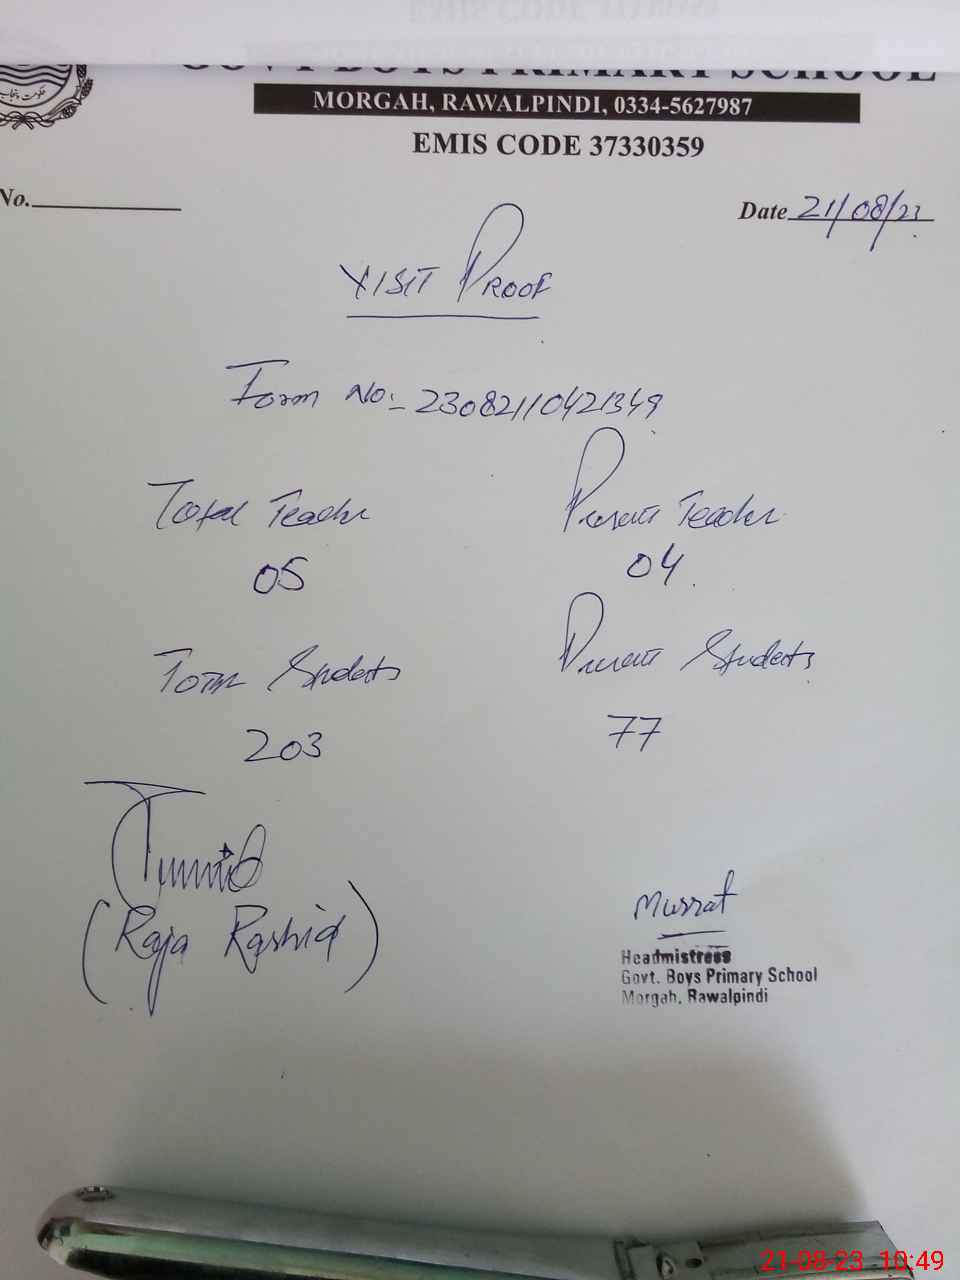 GOVT BOYS PRIMARY SCHOOL
MORGAH, RAWALPINDI, 0334-5627987
EMIS CODE 37330359
No.
Date 21/08/23
VISIT PROOF
Form No:- 23082110421349
Total Teacher Present Teacher
05 04
Total Students Present Students
203 77
(Raja Rashid)
Mussrat
Headmistress
Govt. Boys Primary School
Morgah, Rawalpindi
21-08-23 10:49